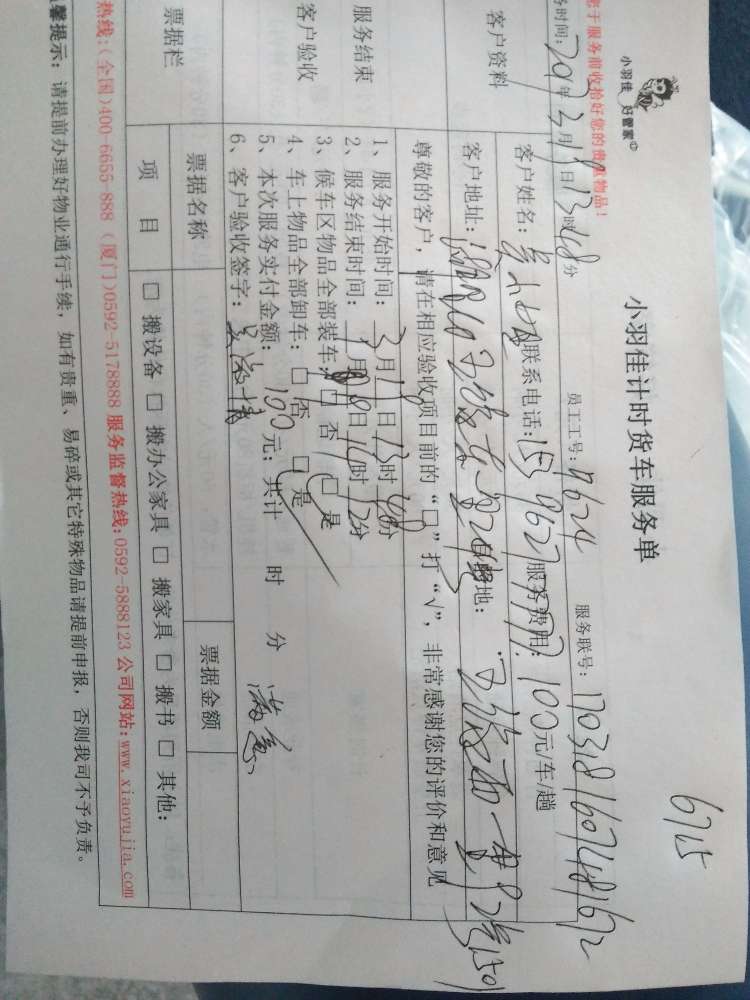 6715
小羽佳 好管家
小羽佳计时货车服务单
您于服务前收拾好您的贵重物品!
务时间: 2017年3月18日13时48分 员工工号: 9624 服务联号: 1703181607481672
客户资料
客户姓名: 联系电话: 服务费用: 100元/车/趟
客户地址: 目的地:
尊敬的客户,请在相应验收项目前的“口”打“√”,非常感谢您的评价和意见
服务结束
客户验收
1、服务开始时间: 3月18日13时48分
2、服务结束时间: 月 日14时12分
3、候车区物品全部装车: □否 □是
4、车上物品全部卸车: □否 □是
5、本次服务实付金额: 100元;共计 时 分
6、客户验收签字: 满意
票据栏
票据名称 票据金额
项目 □搬设备 □搬办公家具 □搬家具 □搬书 □其他:
热线:(全国)400-6655-888 (厦门)0592-5178888 服务监督热线:0592-5888123 公司网站:www.xiaoyujia.com
馨提示: 请提前办理好物业通行手续,如有贵重、易碎或其它特殊物品请提前申报,否则我司不予负责。